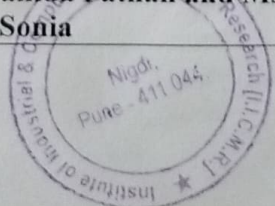 Sonia
Institute of Industrial &
Research [I.I.C.M.R.]
Nigdi,
Pune - 411 044.